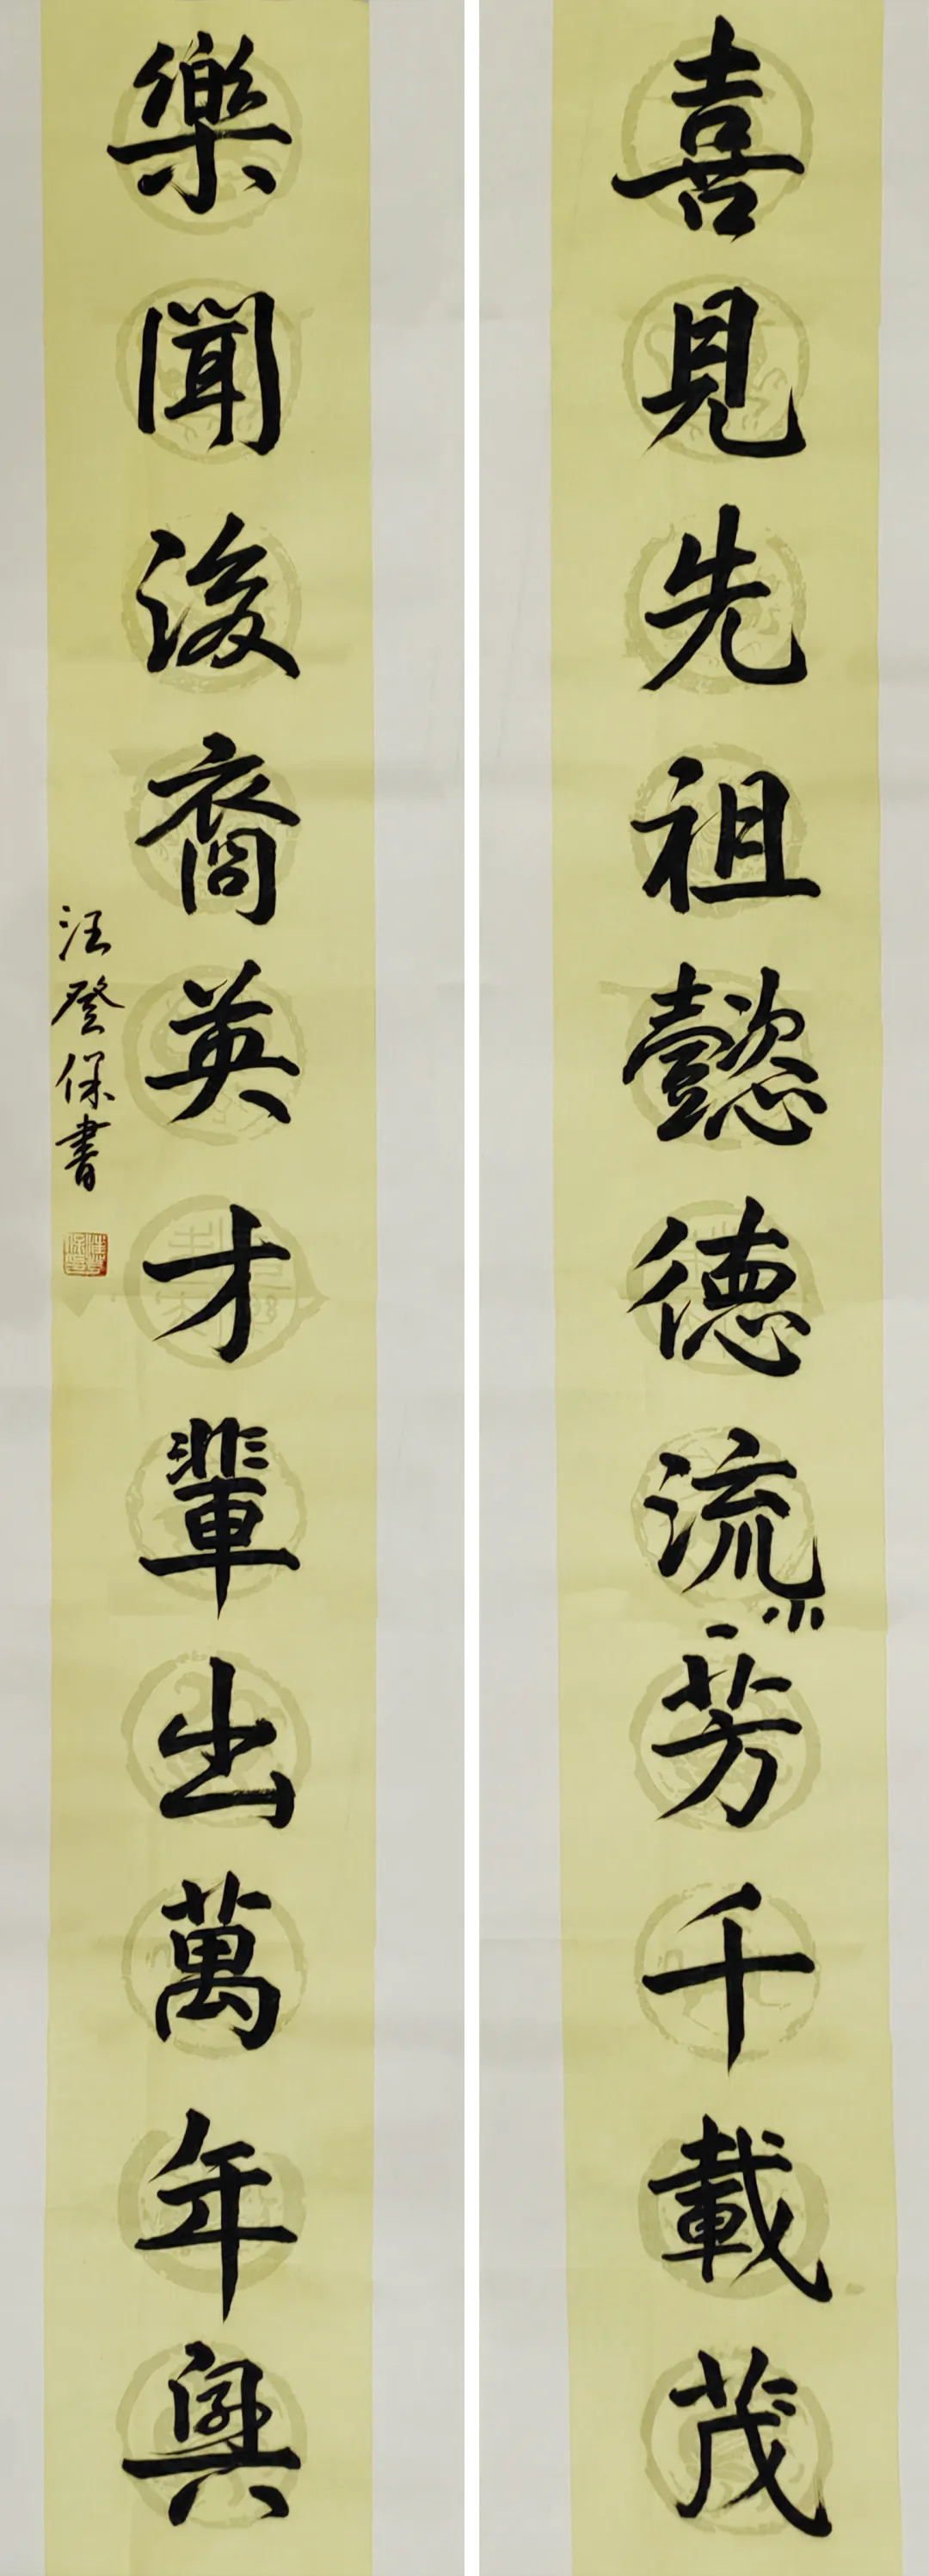 喜見先祖懿德流芳千載茂
樂聞後裔英才輩出萬年興
汪登保書